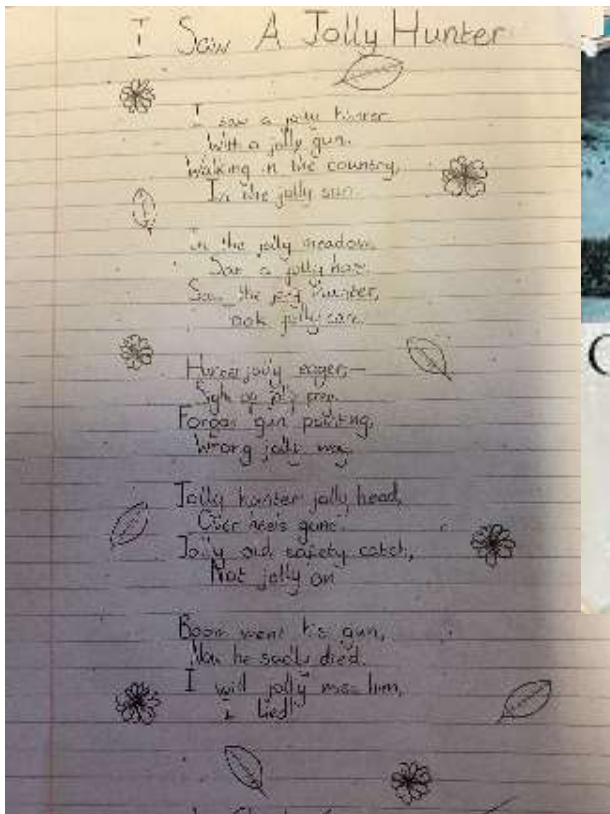 I Saw A Jolly Hunter
I saw a jolly hunter
With a jolly gun.
Walking in the country,
In the jolly sun.
In the jolly meadow,
Saw a jolly hare.
Saw the jolly hunter,
Took jolly care.
Hunter jolly eager,—
Sight of jolly prey.
Forgot gun pointing,
Wrong jolly way.
Jolly hunter jolly head,
Over gone.
Jolly old safety catch,
Not jolly on
Boom went his gun,
Now he sadly died.
I will jolly miss him,
I lied!